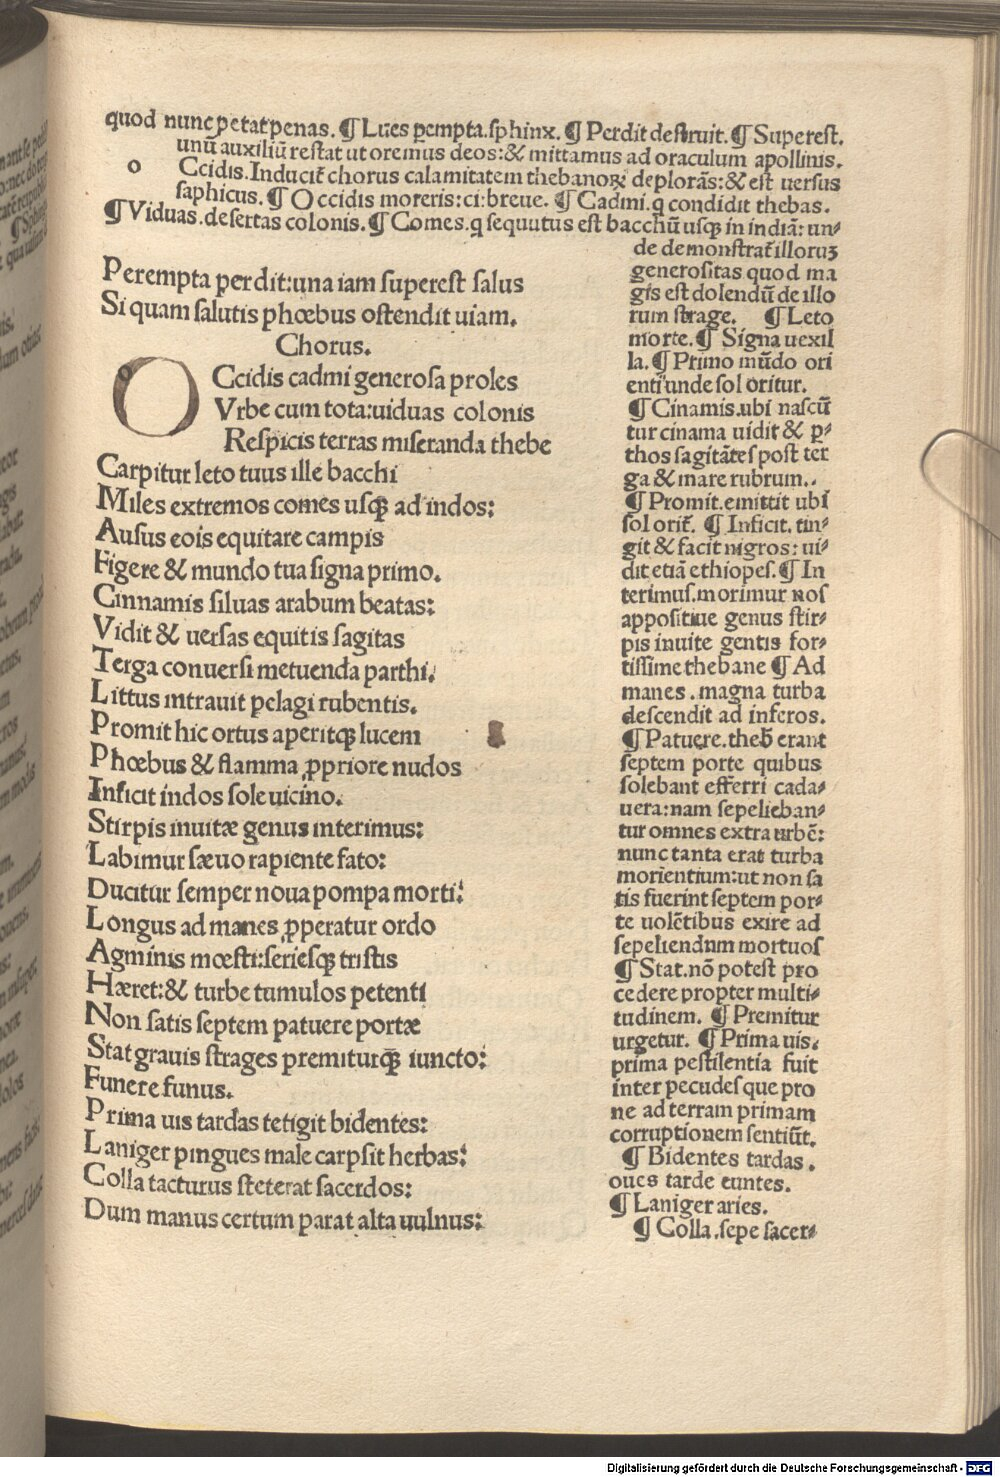 quod nunc petat penas. ¶ Lues ꝑempta.ſphinx. ¶ Perdit deſtruit. ¶ Supereſt.
unū auxiliū reſtat ut oremus deos:& mittamus ad oraculum apollinis.
o Ccidis. Inducit̄ chorus calamitatem thebanoꝝ deplorās:& eſt uerſus
ſaphicus. ¶ Occidis moreris:ci:breue. ¶ Cadmi.q condidit thebas.
¶ Viduas.deſertas colonis. ¶ Comes.q ſequutus eſt bacchū uſqꝫ in indiā: un⸗
de demonſtrat̄ illoruꝫ
generoſitas quod ma
gis eſt dolendū de illo
rum ſtrage. ¶ Leto
morte. ¶ Signa uexil
la. ¶ Primo mūdo ori
enti unde ſol oritur.
¶ Cinamis.ubi naſcū
tur cinama uidit & ꝑ⸗
thos ſagitātes poſt ter
ga & mare rubrum..
¶ Promit.emittit ubi
ſol orit̄. ¶ Inficit. tin⸗
git & facit nigros: ui⸗
dit etiā ethiopeſ. ¶ In
terimuſ.morimur noſ
appoſitiue genus ſtir⸗
pis inuite gentis for⸗
tiſſime thebane ¶ Ad
manes.magna turba
deſcendit ad inferos.
¶ Patuere.theb̄ erant
ſeptem porte quibus
ſolebant efferri cada⸗
uera:nam ſepelieban⸗
tur omnes extra urbē:
nunc tanta erat turba
morientium:ut non ſa
tis fuerint ſeptem por⸗
te uolētibus exire ad
ſepeliendum mortuoſ
¶ Stat.nō poteſt pro
cedere propter multi⸗
tudinem. ¶ Premitur
urgetur. ¶ Prima uis.
prima peſtilentia fuit
inter pecudeſ que pro
ne ad terram primam
corruptionem ſentiūt.
¶ Bidentes tardas.
oues tarde euntes.
¶ Laniger aries.
¶ Colla.ſepe ſacer⸗
Perempta perdit:una iam ſupereſt ſalus
Si quam ſalutis phœbus oſtendit uiam.
Chorus.
O Ccidis cadmi generoſa proles
Vrbe cum tota:uiduas colonis
Reſpicis terras miſeranda thebe
Carpitur leto tuus ille bacchi
Miles extremos comes uſqꝫ ad indos:
Auſus eois equitare campis
Figere & mundo tua ſigna primo.
Cinnamis ſiluas arabum beatas:
Vidit & uerſas equitis ſagitas
Terga conuerſi metuenda parthi.
Littus intrauit pelagi rubentis.
Promit hic ortus aperitqꝫ lucem
Phœbus & flamma ꝓpriore nudos
Inficit indos ſole uicino.
Stirpis inuitæ genus interimus:
Labimur ſæuo rapiente fato:
Ducitur ſemper noua pompa morti:
Longus ad manes ꝓperatur ordo
Agminis mœſti:ſerieſqꝫ triſtis
Hæret:& turbe tumulos petenti
Non ſatis ſeptem patuere portæ
Stat grauis ſtrages premiturqꝫ iuncto:
Funere funus.
Prima uis tardas tetigit bidentes:
Laniger pingues male carpſit herbas:
Colla tacturus ſteterat ſacerdos:
Dum manus certum parat alta uulnus:
Digitalisierung gefördert durch die Deutsche Forschungsgemeinschaft - DFG